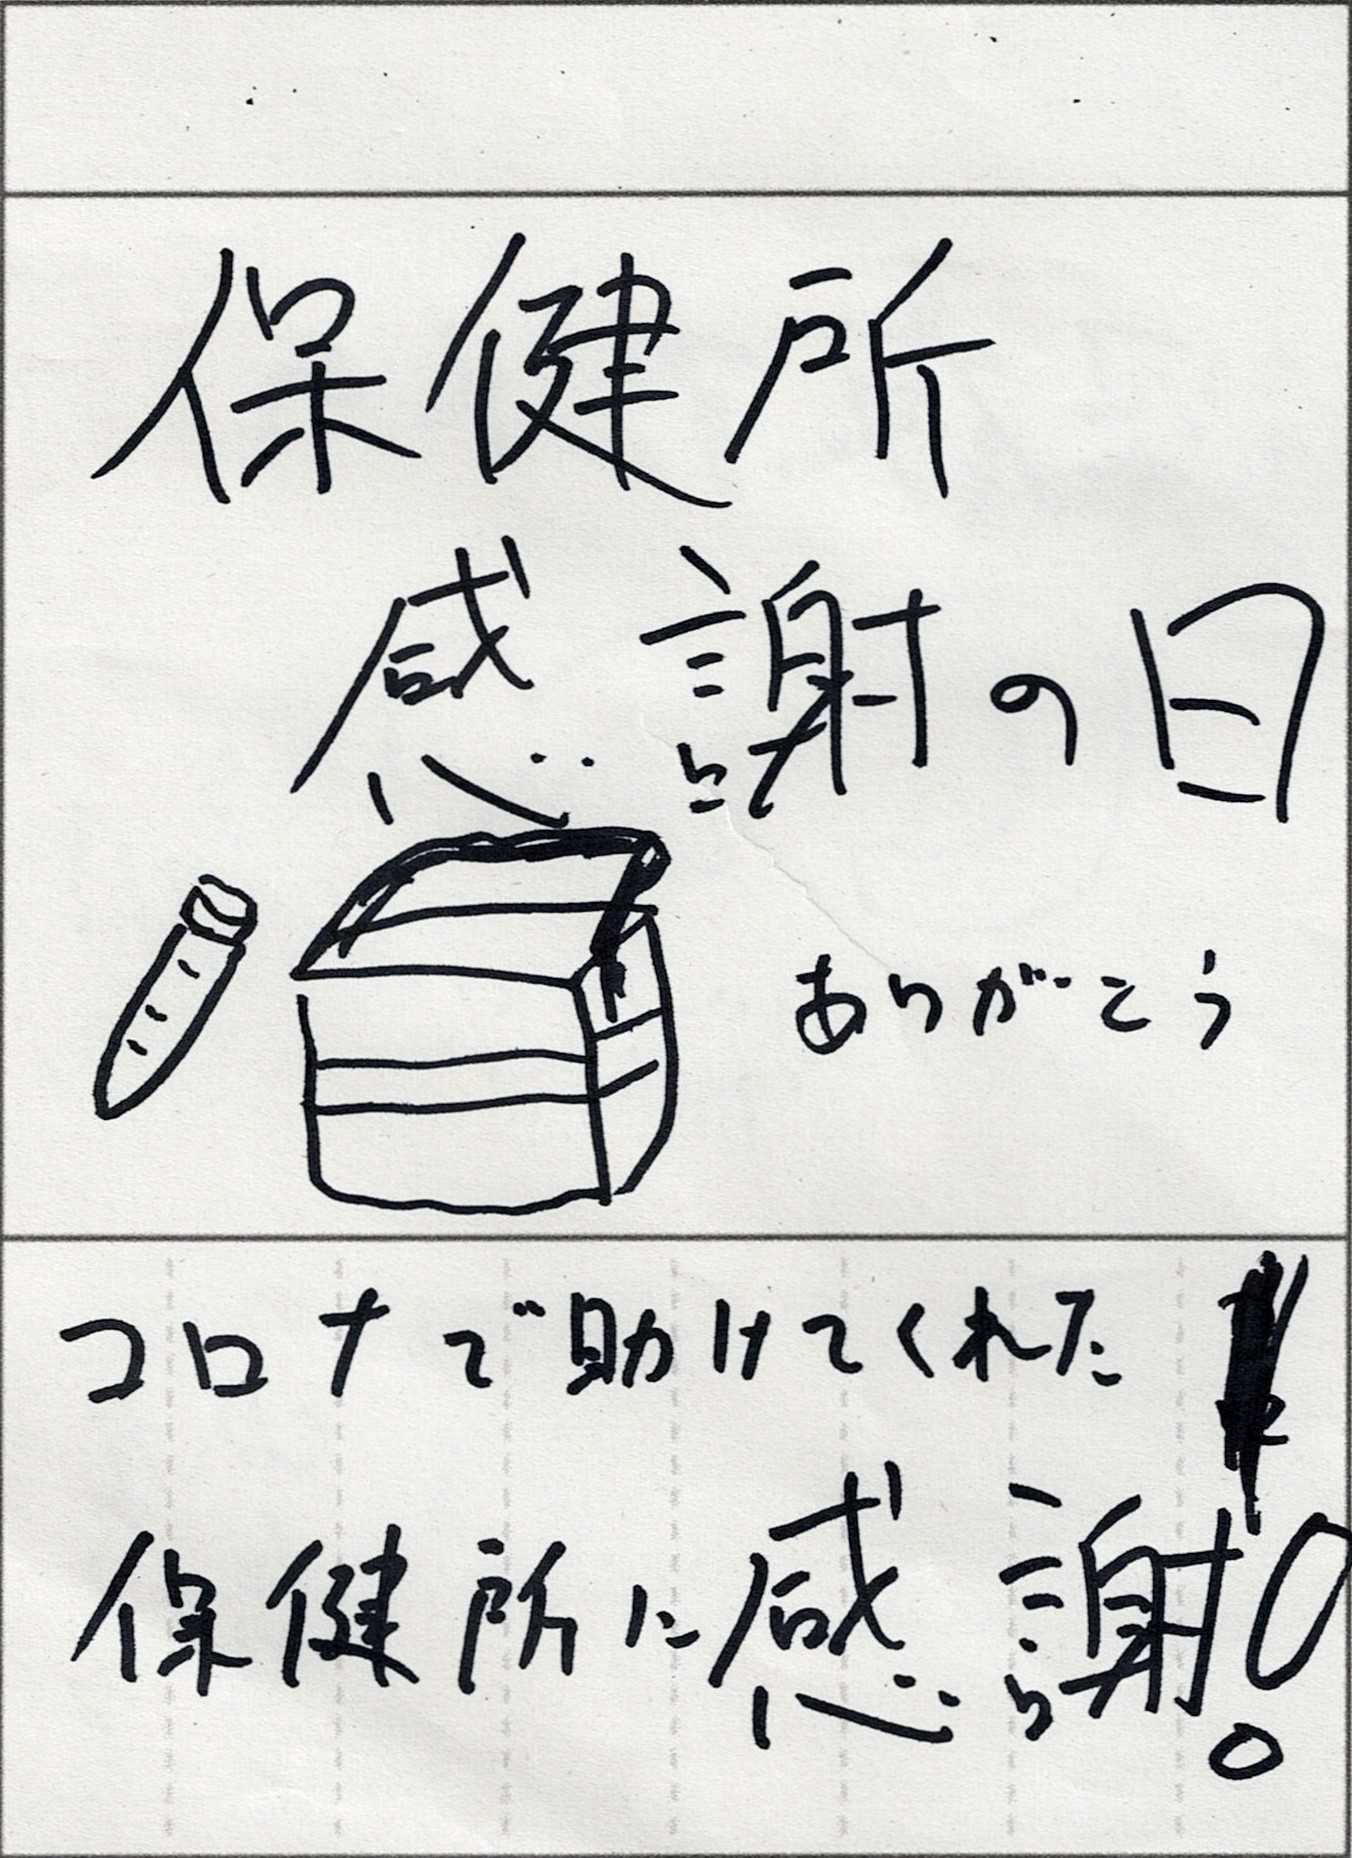 保健所
感謝の日
ありがとう
コロナで助けてくれた
保健所に感謝!